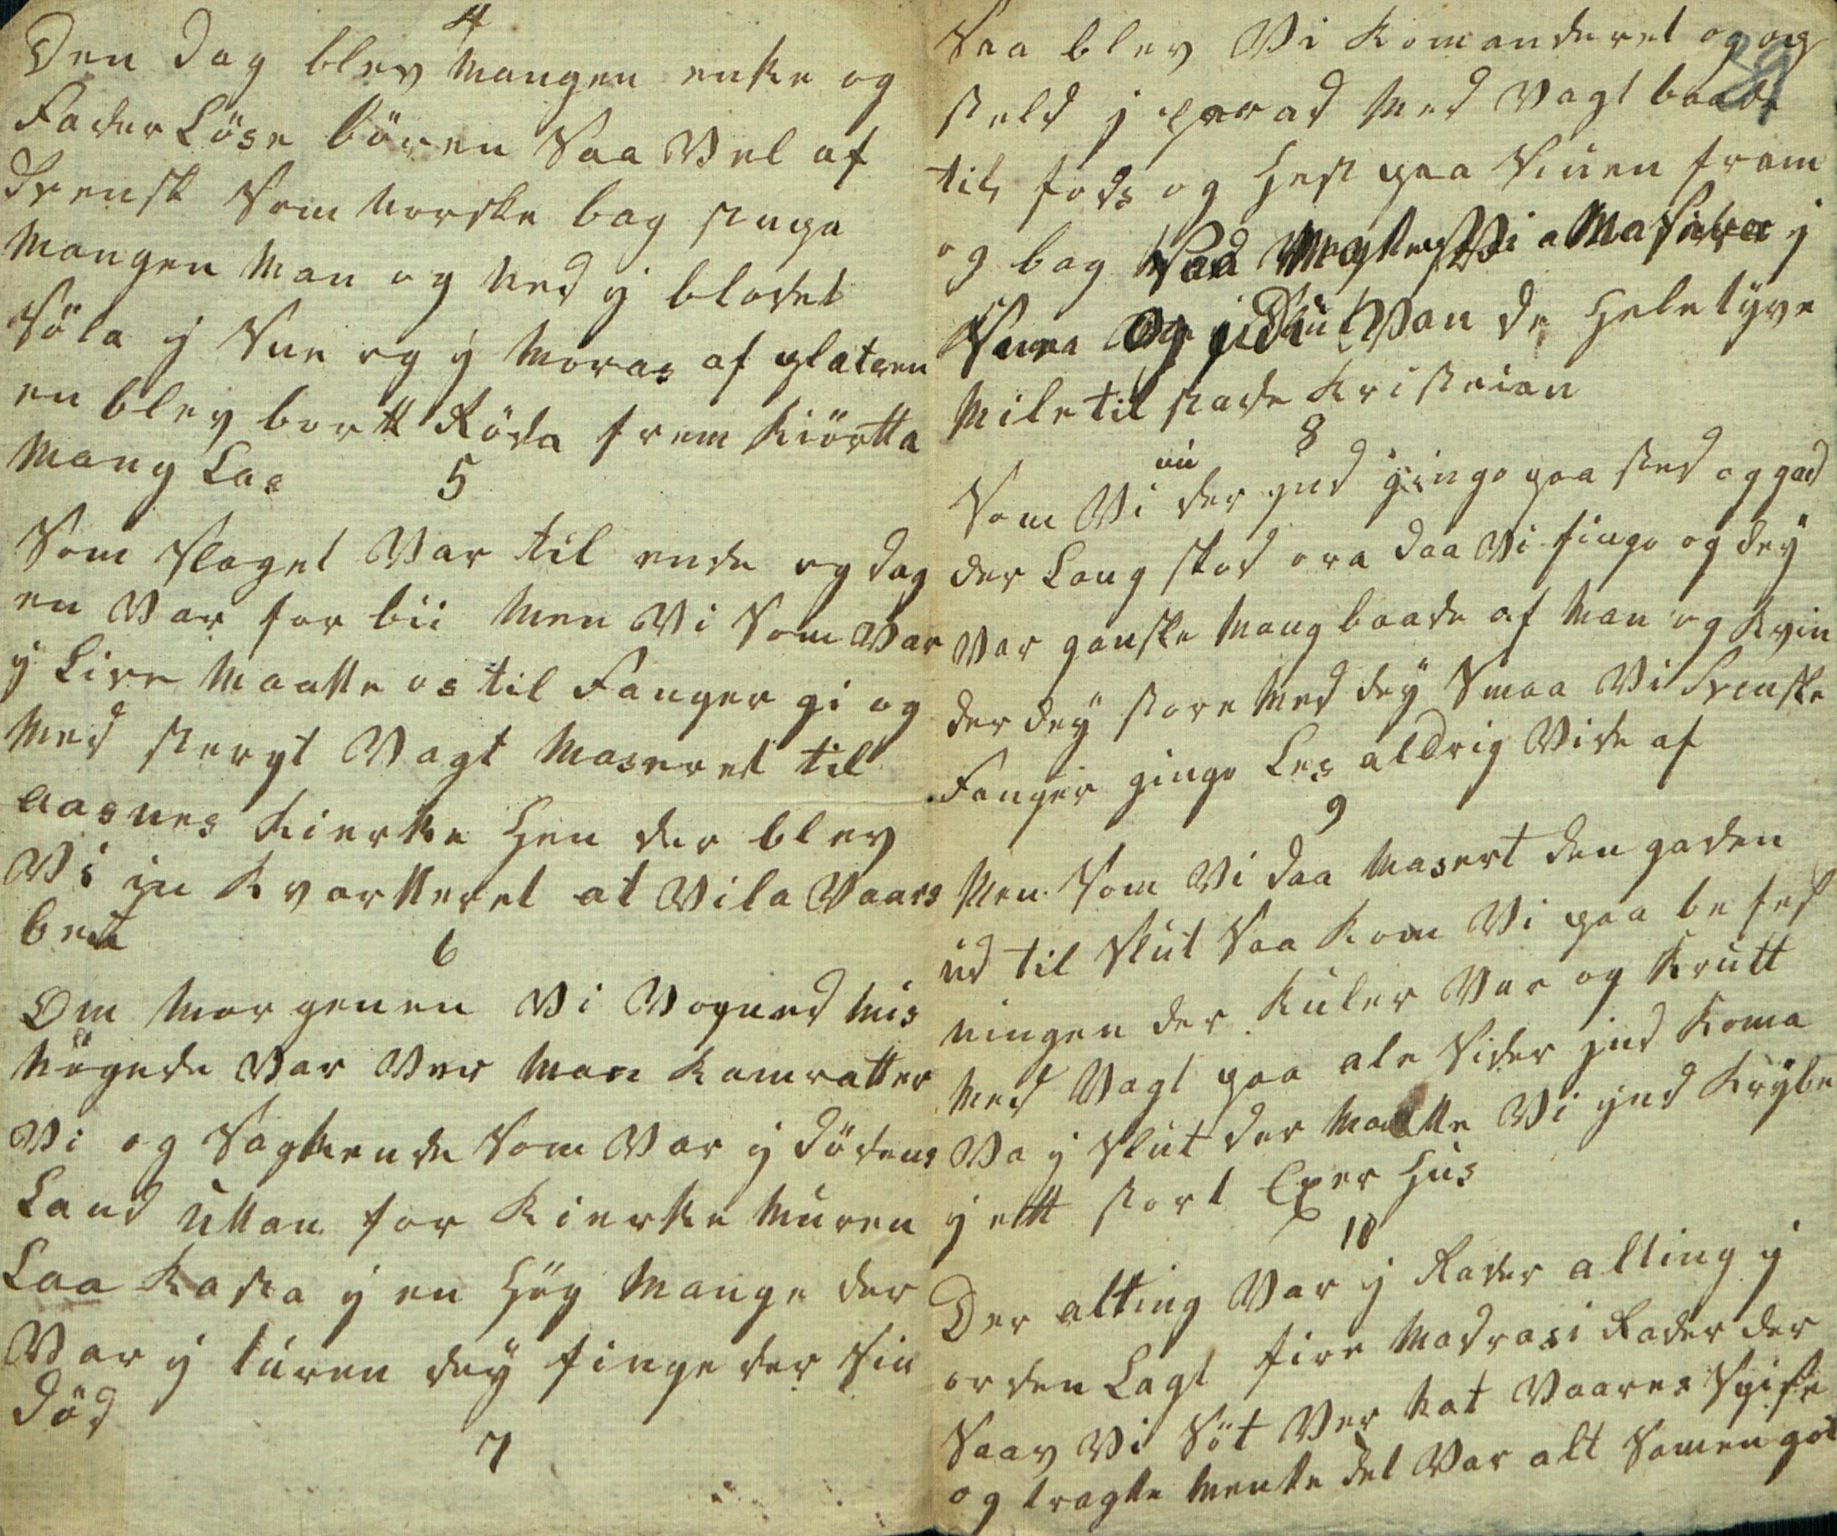 4
Den dag blev mangen enke og
Fader Löse bören Saa Vel af
Svensk Som norske bag stupa
Mangen man og ned ÿ blodet
Söla ÿ Sne og ÿ moras af platsen
en blev bortt Röda frem kiörtta
mang Las
5
Som slaget Var til ende og dag
en Var for bii men Vi Som Var
ÿ Live maatte os til Fanger gi og
med stergt Vagt maseret til
aasnes kierke hen der blev
Vi in kvartteret at Vila Vaars
bent
6
Om morgenen Vi Vogned mis
nögede Var Ver man kamratter
Vi og Sagkende Som Var ÿ dödens
Land uttan for kierke muren
Laa kasta ÿ en hög mange der
Var ÿ turen deÿ finge der sin
död
7
Saa blev Vi komanderet og og
steld j parad med Vagt baade
til fods og hest paa Siden fram
og bag Saa Vi a Masiera j
og Van de hele tÿve
mile til stade kristeian
8
Som Vi nu der ÿnd gingo paa sted og gad
der Lang stod ora daa Vi fingo og deÿ
Var ganske mang baade af man og kvin
der deÿ store med deÿ Smaa Vi Svenske
Fanger gingo Les aldrig Vide af
9
Men Som Vi daa masert den gaden
ud til slut Saa kom Vi paa be fest
ningen der kuler Var og krutt
med Vagt paa ale Sider ÿnd koma
Va ÿ slut der maatte Vi ÿnd krÿbe
ÿ ett stort Exer hus
10
Der alting Var ÿ Rader alting ÿ
orden Lagt fire madrasi Rader der
Saav Vi Söt Ver nat Vaares Spise
og tragtte mentte det Var alt Samen got